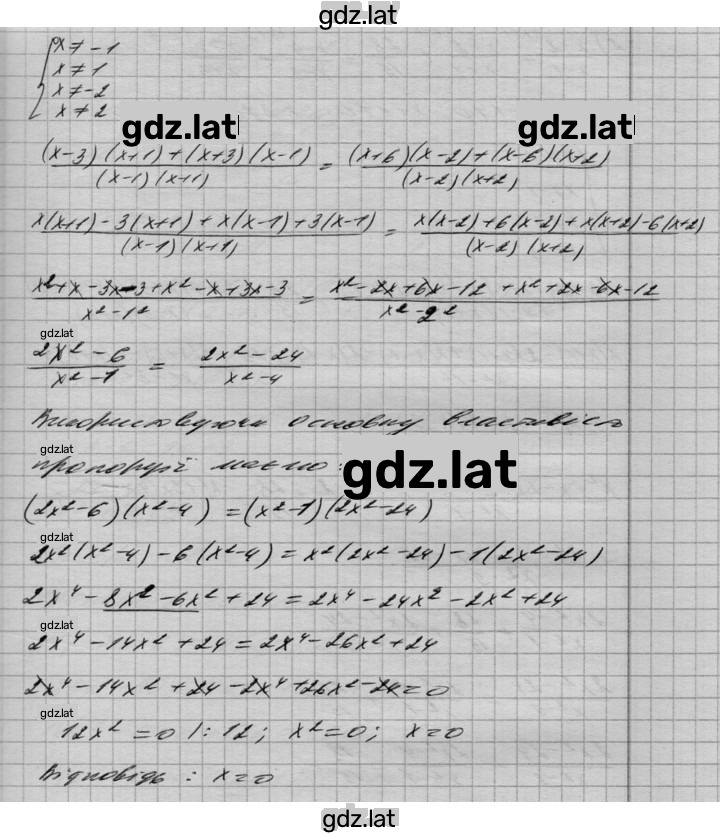 gdz.lat
x ≠ -1
x ≠ 1
x ≠ -2
x ≠ 2
gdz.lat gdz.lat
((x-3)(x+1)+(x+3)(x-1))/((x-1)(x+1)) = ((x+6)(x-2)+(x-6)(x+2))/((x-2)(x+2))
(x(x+1)-3(x+1)+x(x-1)+3(x-1))/((x-1)(x+1)) = (x(x-2)+6(x-2)+x(x+2)-6(x+2))/((x-2)(x+2))
(x²+x-3x-3+x²-x+3x-3)/(x²-1²) = (x²-2x+6x-12+x²+2x-6x-12)/(x²-2²)
gdz.lat
(2x²-6)/(x²-1) = (2x²-24)/(x²-4)
Використовуючи основну властивість
gdz.lat
пропорції маємо:
gdz.lat
(2x²-6)(x²-4) = (x²-1)(2x²-24)
gdz.lat
2x²(x²-4)-6(x²-4) = x²(2x²-24)-1(2x²-24)
2x⁴-8x²-6x²+24 = 2x⁴-24x²-2x²+24
gdz.lat
2x⁴-14x²+24 = 2x⁴-26x²+24
2x⁴-14x²+24-2x⁴+26x²-24=0
gdz.lat
12x²=0 |:12; x²=0; x=0
Відповідь: x=0
gdz.lat